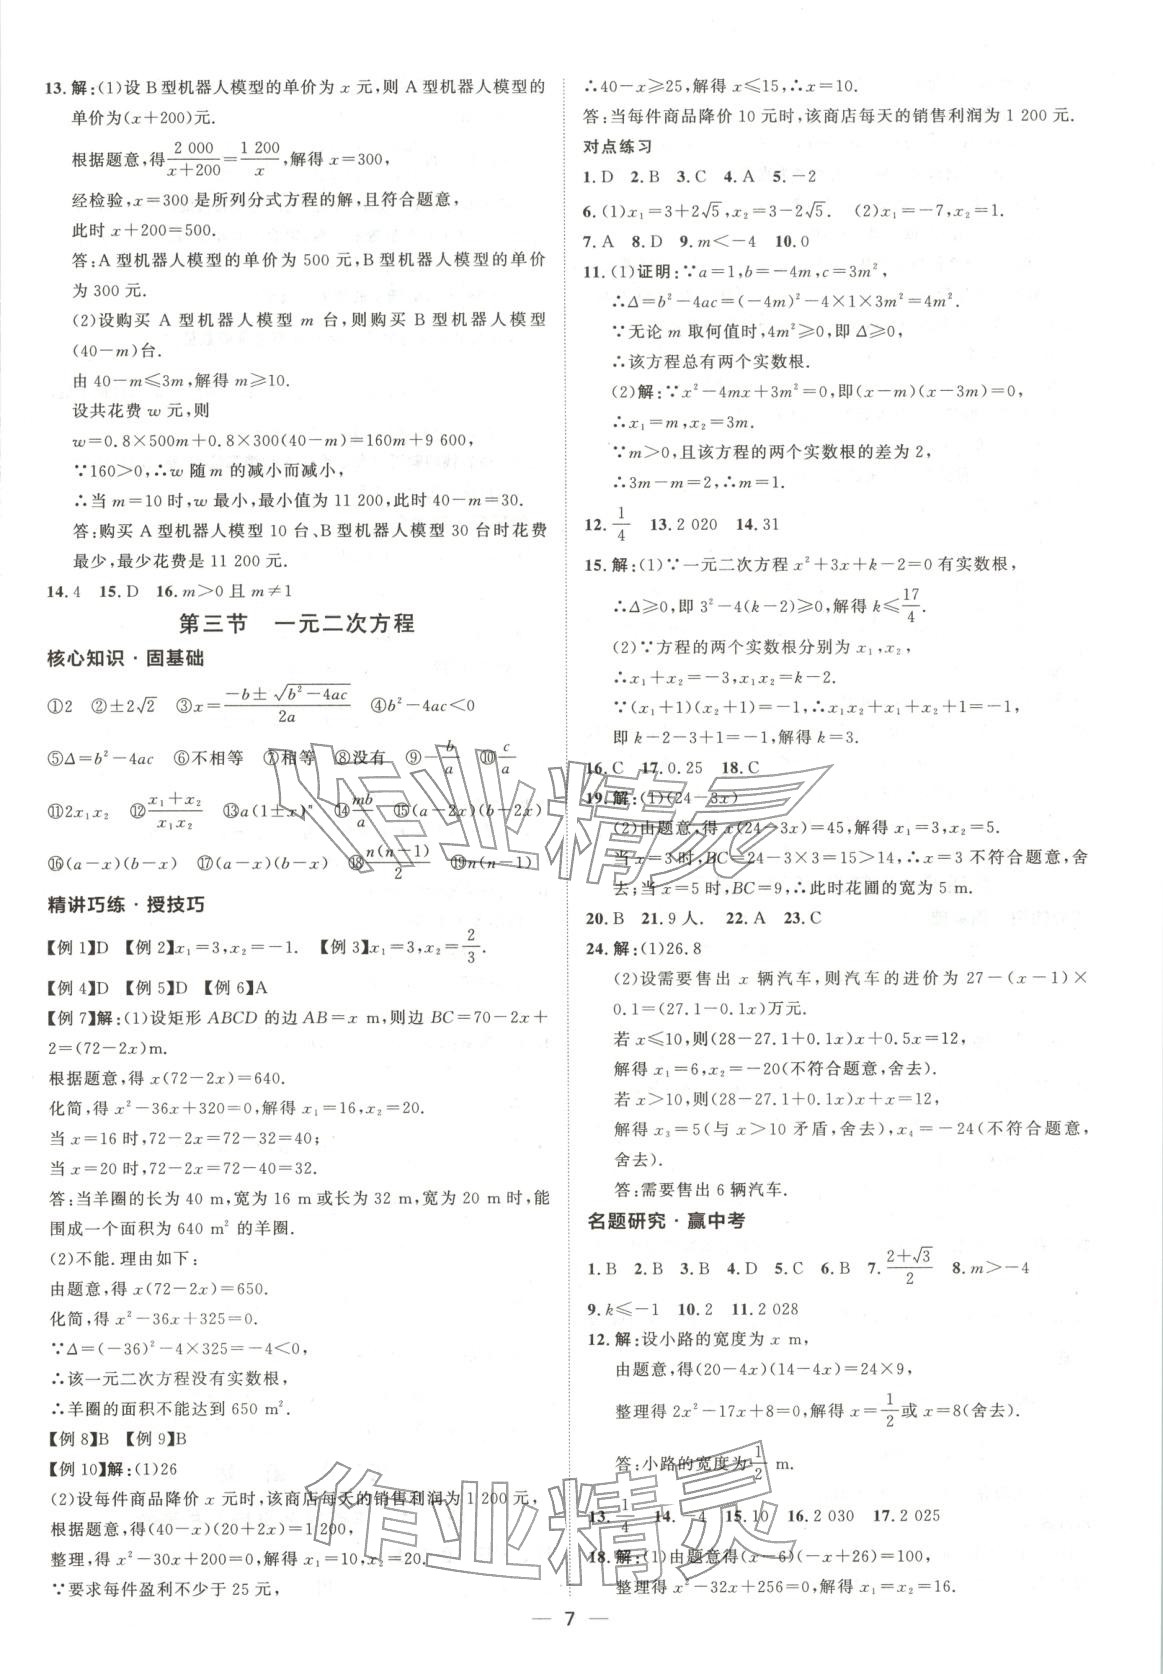 13.解:(1)设 B 型机器人模型的单价为 x 元,则 A 型机器人模型的
单价为(x+200)元.
根据题意,得2 000/(x+200)=1 200/x,解得 x=300,
经检验,x=300 是所列分式方程的解,且符合题意,
此时 x+200=500.
答:A 型机器人模型的单价为 500 元,B 型机器人模型的单价
为 300 元.
(2)设购买 A 型机器人模型 m 台,则购买 B 型机器人模型
(40-m)台.
由 40-m≤3m,解得 m≥10.
设共花费 w 元,则
w=0.8×500m+0.8×300(40-m)=160m+9 600,
∵160>0,∴w 随 m 的减小而减小,
∴当 m=10 时,w 最小,最小值为 11 200,此时 40-m=30.
答:购买 A 型机器人模型 10 台、B 型机器人模型 30 台时花费
最少,最少花费是 11 200 元.
14.4 15.D 16.m>0 且 m≠1
第三节 一元二次方程
核心知识·固基础
①2 ②±2√2 ③x=(-b±√(b²-4ac))/2a ④b²-4ac<0
⑤Δ=b²-4ac ⑥不相等 ⑦相等 ⑧没有 ⑨-b/a ⑩c/a
⑪2x₁x₂ ⑫(x₁+x₂)/(x₁x₂) ⑬a(1±x)ⁿ ⑭mb/a ⑮(a-2x)(b-2x)
⑯(a-x)(b-x) ⑰(a-x)(b-x) ⑱n(n-1)/2 ⑲n(n-1)
精讲巧练·授技巧
【例 1】D 【例 2】x₁=3,x₂=-1. 【例 3】x₁=3,x₂=2/3.
【例 4】D 【例 5】D 【例 6】A
【例 7】解:(1)设矩形 ABCD 的边 AB=x m,则边 BC=70-2x+
2=(72-2x)m.
根据题意,得 x(72-2x)=640.
化简,得 x²-36x+320=0,解得 x₁=16,x₂=20.
当 x=16 时,72-2x=72-32=40;
当 x=20 时,72-2x=72-40=32.
答:当羊圈的长为 40 m,宽为 16 m 或长为 32 m,宽为 20 m 时,能
围成一个面积为 640 m² 的羊圈.
(2)不能.理由如下:
由题意,得 x(72-2x)=650.
化简,得 x²-36x+325=0.
∵Δ=(-36)²-4×325=-4<0,
∴该一元二次方程没有实数根,
∴羊圈的面积不能达到 650 m².
【例 8】B 【例 9】B
【例 10】解:(1)26
(2)设每件商品降价 x 元时,该商店每天的销售利润为1 200 元,
根据题意,得(40-x)(20+2x)=1 200,
整理,得 x²-30x+200=0,解得 x₁=10,x₂=20.
∵要求每件盈利不少于 25 元,
∴40-x≥25,解得 x≤15,∴x=10.
答:当每件商品降价 10 元时,该商店每天的销售利润为 1 200 元.
对点练习
1.D 2.B 3.C 4.A 5.-2
6.(1)x₁=3+2√5,x₂=3-2√5. (2)x₁=-7,x₂=1.
7.A 8.D 9.m<-4 10.0
11.(1)证明:∵a=1,b=-4m,c=3m²,
∴Δ=b²-4ac=(-4m)²-4×1×3m²=4m².
∵无论 m 取何值时,4m²≥0,即 Δ≥0,
∴该方程总有两个实数根.
(2)解:∵x²-4mx+3m²=0,即(x-m)(x-3m)=0,
∴x₁=m,x₂=3m.
∵m>0,且该方程的两个实数根的差为 2,
∴3m-m=2,∴m=1.
12.1/4 13.2 020 14.31
15.解:(1)∵一元二次方程 x²+3x+k-2=0 有实数根,
∴Δ≥0,即 3²-4(k-2)≥0,解得 k≤17/4.
(2)∵方程的两个实数根分别为 x₁,x₂,
∴x₁+x₂=-3,x₁x₂=k-2.
∵(x₁+1)(x₂+1)=-1,∴x₁x₂+x₁+x₂+1=-1,
即 k-2-3+1=-1,解得 k=3.
16.C 17.0.25 18.C
19.解:(1)(24-3x)
(2)由题意,得 x(24-3x)=45,解得 x₁=3,x₂=5.
当 x=3 时,BC=24-3×3=15>14,∴x=3 不符合题意,舍
去;当 x=5 时,BC=9,∴此时花圃的宽为 5 m.
20.B 21.9 人. 22.A 23.C
24.解:(1)26.8
(2)设需要售出 x 辆汽车,则汽车的进价为 27-(x-1)×
0.1=(27.1-0.1x)万元.
若 x≤10,则(28-27.1+0.1x)x+0.5x=12,
解得 x₁=6,x₂=-20(不符合题意,舍去).
若 x>10,则(28-27.1+0.1x)x+x=12,
解得 x₃=5(与 x>10 矛盾,舍去),x₄=-24(不符合题意,
舍去).
答:需要售出 6 辆汽车.
名题研究·赢中考
1.B 2.B 3.B 4.D 5.C 6.B 7.(2+√3)/2 8.m>-4
9.k≤-1 10.2 11.2 028
12.解:设小路的宽度为 x m,
由题意,得(20-4x)(14-4x)=24×9,
整理得 2x²-17x+8=0,解得 x=1/2或 x=8(舍去).
答:小路的宽度为1/2 m.
13.1/4 14.-4 15.10 16.2 030 17.2 025
18.解:(1)由题意得(x-6)(-x+26)=100,
整理得 x²-32x+256=0,解得 x₁=x₂=16.
7
作业精灵
作业精灵